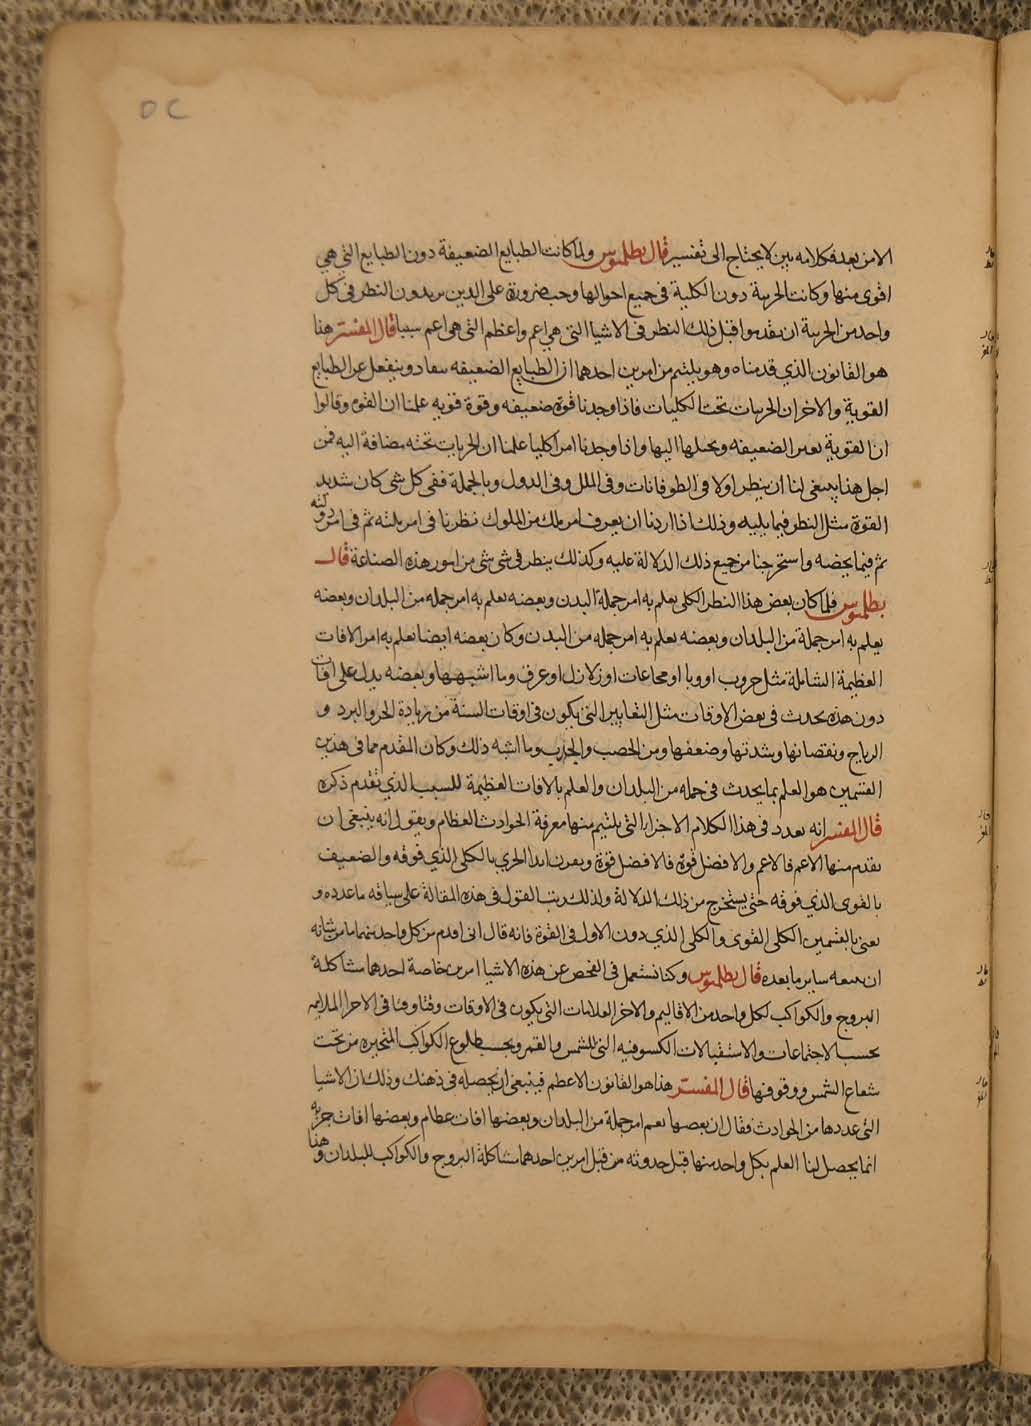 الامر بعد فكلامه بين لا يحتاج الى تفسير قال بطلميوس ولما كانت الطبايع الضعيفة دون الطبايع التي هي
اقوى منها وكانت الجزيية دون الكلية في جميع احوالها وجب ضرورة على الذين يريدون النظر في كل
واحد من الجزيية ان يقدموا قبل ذلك النظر في الاشيا التي هي اعم واعظم التي هي اعم سببا قال المفسر هذا
هو القانون الذي قدمناه وهو يلتيم من امرين احدهما ان الطبايع الضعيفه تنقاد وينفعل عن الطبايع
القوية والاخر ان الجزييات تحت الكليات فاذا وجدنا قوة ضعيفه وقوة قويه علمنا ان القوم وقالوا
ان القوية تغير الضعيفه وتحيلها اليها واذا وجدنا امرا كليا علمنا ان الجزييات تحته مضافة اليه فمن
اجل هذا ينبغي لنا ان ينظر اولا في الطوفانات وفي الملل وفي الدول وبالجملة ففي كل شي كان شديد
القوة مثل النظر فيما يليه وذلك اذا اردنا ان يعرف امر ملك من الملوك نظرنا في امر بلته ثم في امر دولته
ثم فيما يخصه واستخرجنا من جميع ذلك الدلالة عليه وكذلك ينظر في شي شي من امور هذه الصناعة قال
بطلميوس فلما كان بعض هذا النظر الكلي يعلم به امر جملة البدن وبعضه يعلم به امر جمله من البلدان وبعضه
يعلم به امر جملة من البلدان وبعضه يعلم به امر جمله من البدن وكان بعضه ايضا نعلم به امر الافات
العظيمة الشاملة مثل حروب او وبا او مجاعات او زلازل او غرق وما اشبهها وبعضه يدل على افات
دون هذه يحدث في بعض الاوقات مثل التغايير التي يكون في اوقات السنة من زيادة الحر والبرد و
الرياح ونقصانها وشدتها وضعفها ومن الخصب والجدب وما اشبه ذلك وكان المقدم مما في هذين
القسمين هو العلم بما يحدث في جمله من البلدان والعلم بالافات العظيمة للسبب الذي تقدم ذكره
قال المفسر انه يعدد في هذا الكلام الاجزا التي يلتيم منها معرفة الحوادث العظام ويقول انه ينبغي ان
نقدم منها الاعم فالاعم والافضل قوة فالافضل قوة ويقرن ابدا الجزي بالكلي الذي فوقه والضعيف
بالقوى الذي فوقه حتى يستخرج من ذلك الدلالة ولذلك رتب القول في هذه المقالة على سياقه ما عدده و
يعني بالقسمين الكلي القوى والكلي الذي دون الاول في القوة فانه قال انى اقدم من كل واحد منهما ما من شانه
ان يتبعه ساير ما بعده قال بطلميوس وكنا نستعمل في الفحص عن هذه الاشيا امرين خاصة احدهما مشاكلة
البروج والكواكب لكل واحد من الاقاليم والاخر العلامات التي يكون في الاوقات وقتا وقتا في الاجزا الملايمه
بحسب الاجتماعات والاستقبالات الكسوفيه التي للشمس والقمر وبحسب طلوع الكواكب المتحيره من تحت
شعاع الشمس ووقوفها قال المفسر هذا هو القانون الاعظم فينبغي ان يحصله في ذهنك وذلك ان الاشيا
التي عددها من الحوادث فقال ان بعضها يعم امر جملة من البلدان وبعضها افات عظام وبعضها افات جزيه
انما يحصل لنا العلم بكل واحد منها قبل حدوثه من قبل امرين احدهما مشاكلة البروج والكواكب للبلدان وهذا